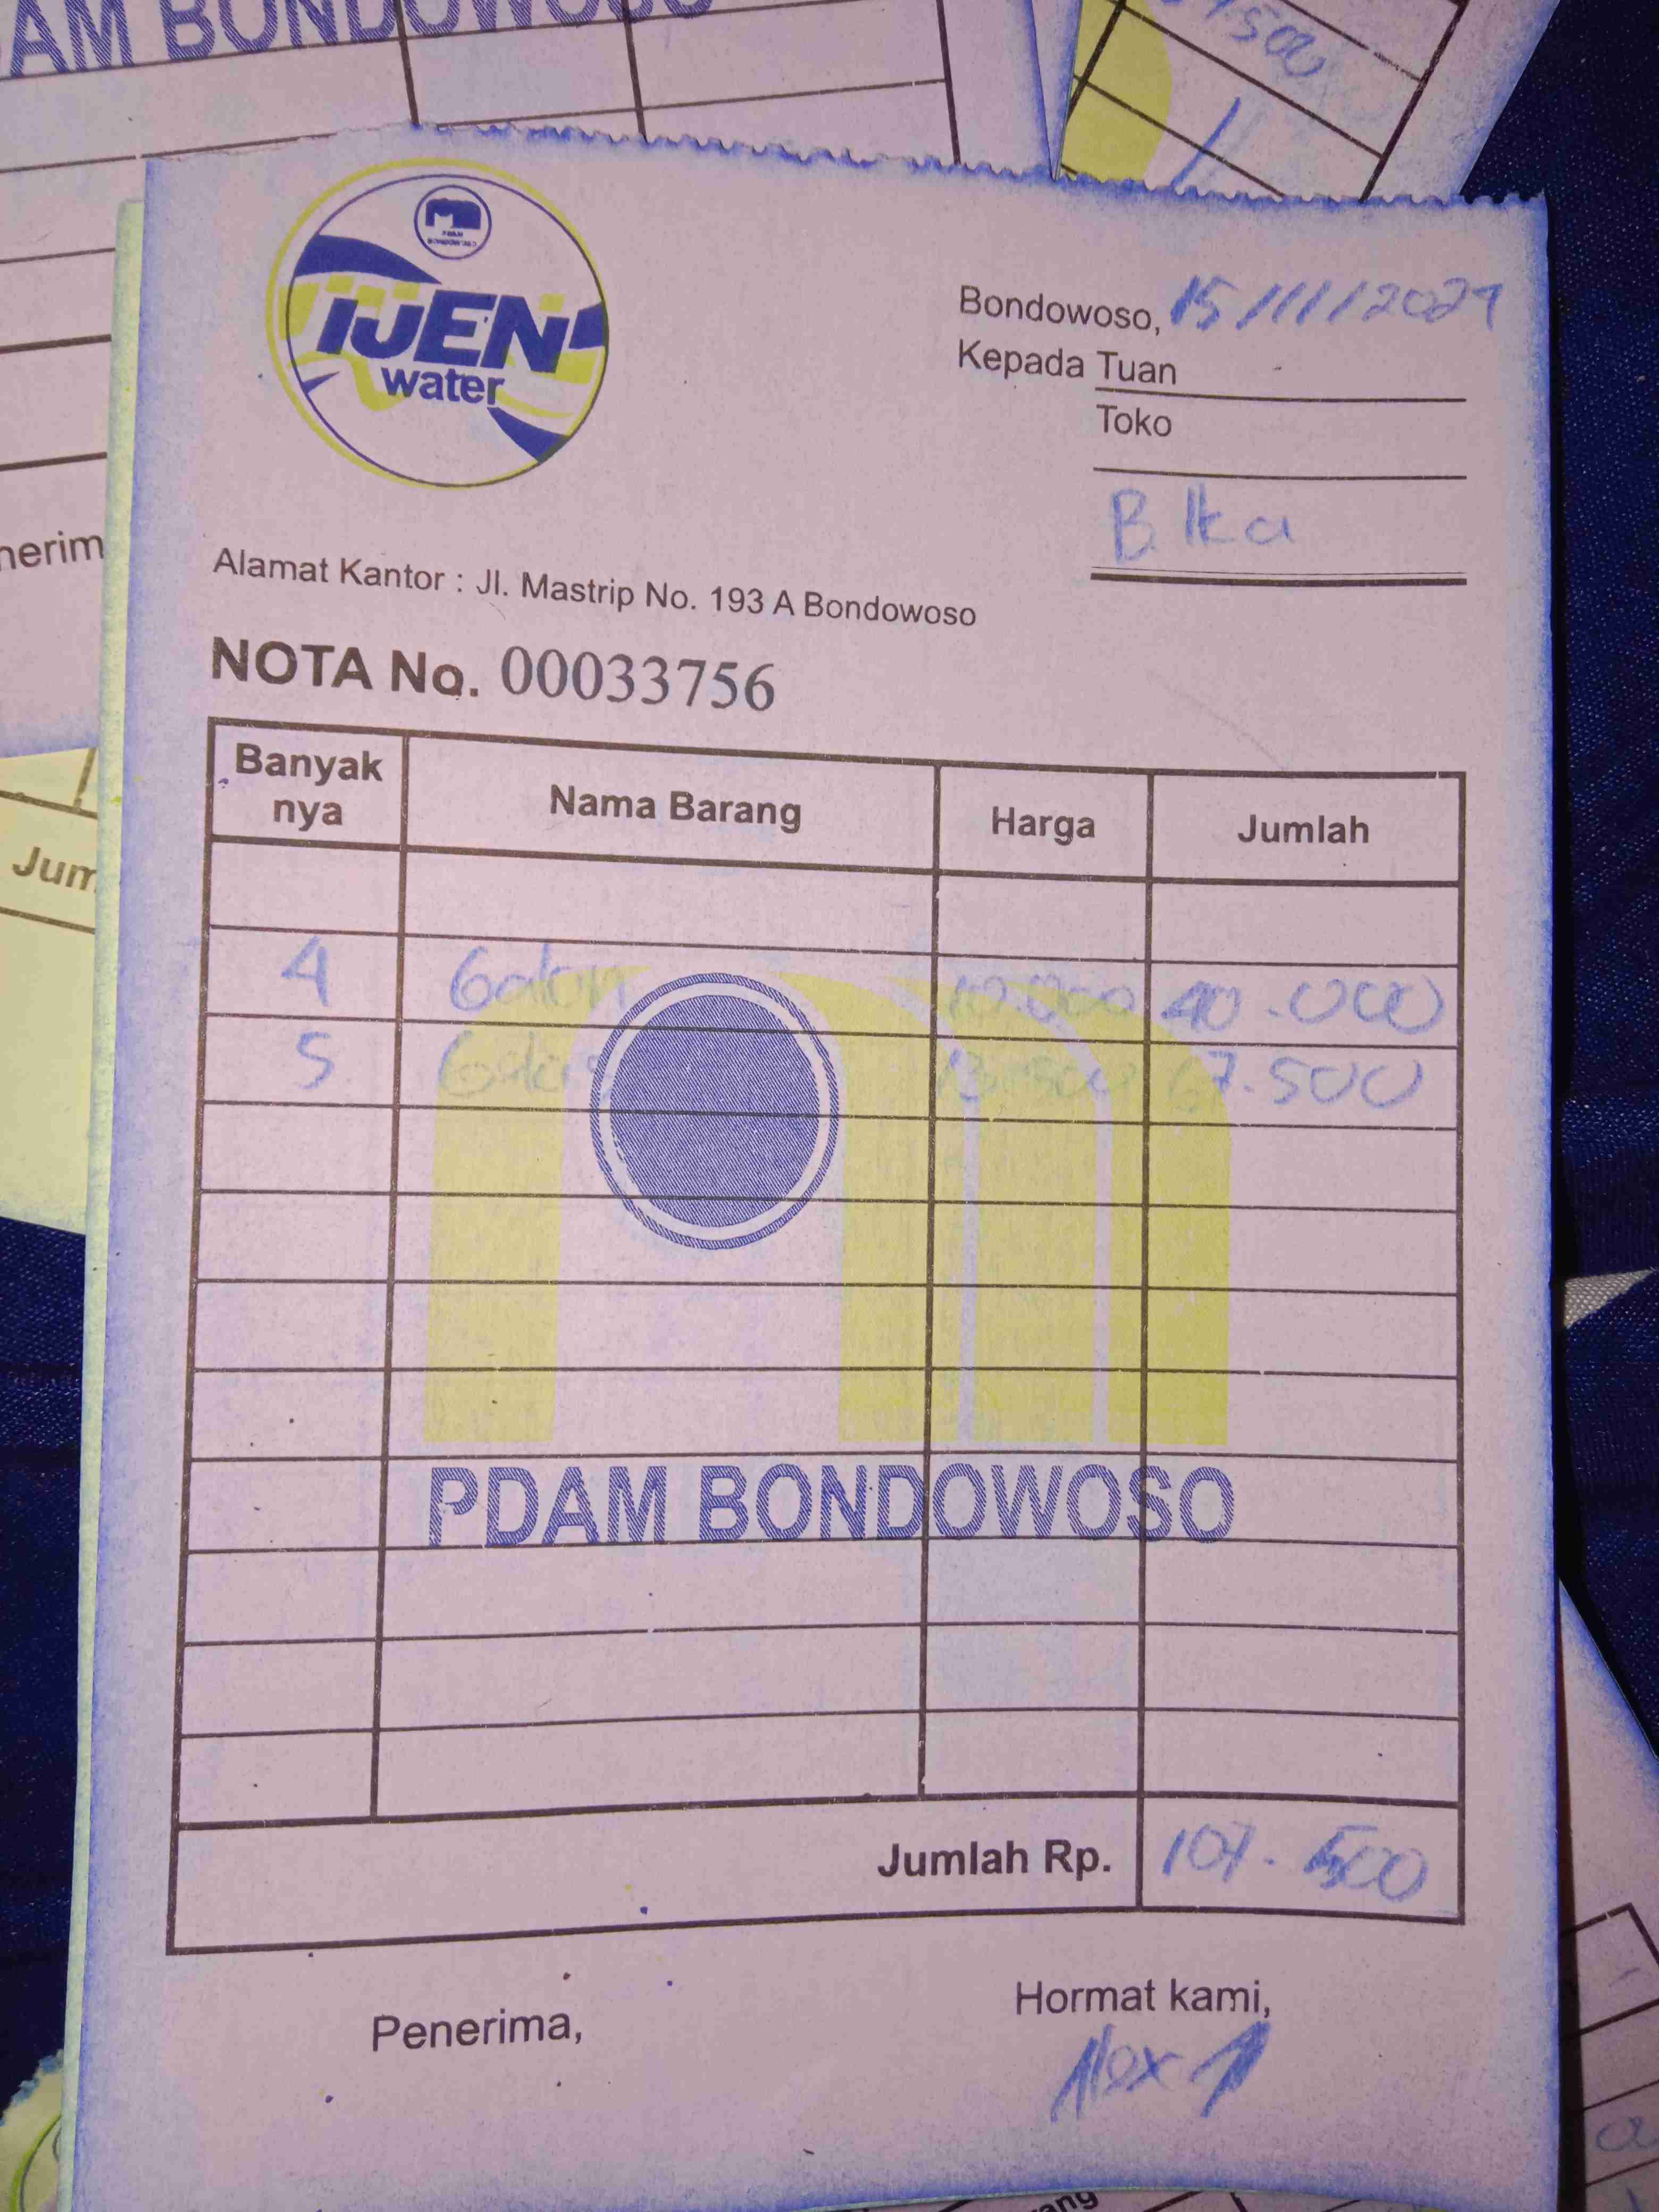 AM BONDOWOSO
500
PDAM
BONDOWOSO
IJEN
water
Bondowoso, 15/11/2024
Kepada Tuan
Toko
B. Ika
Alamat Kantor : Jl. Mastrip No. 193 A Bondowoso
NOTA No. 00033756
Banyak nya Nama Barang Harga Jumlah
4 Galon 10.000 40.000
5 Gelas 13.500 67.500
PDAM BONDOWOSO
Jumlah Rp. 107.500
Penerima,
Hormat kami,
nerim
Jum
ang